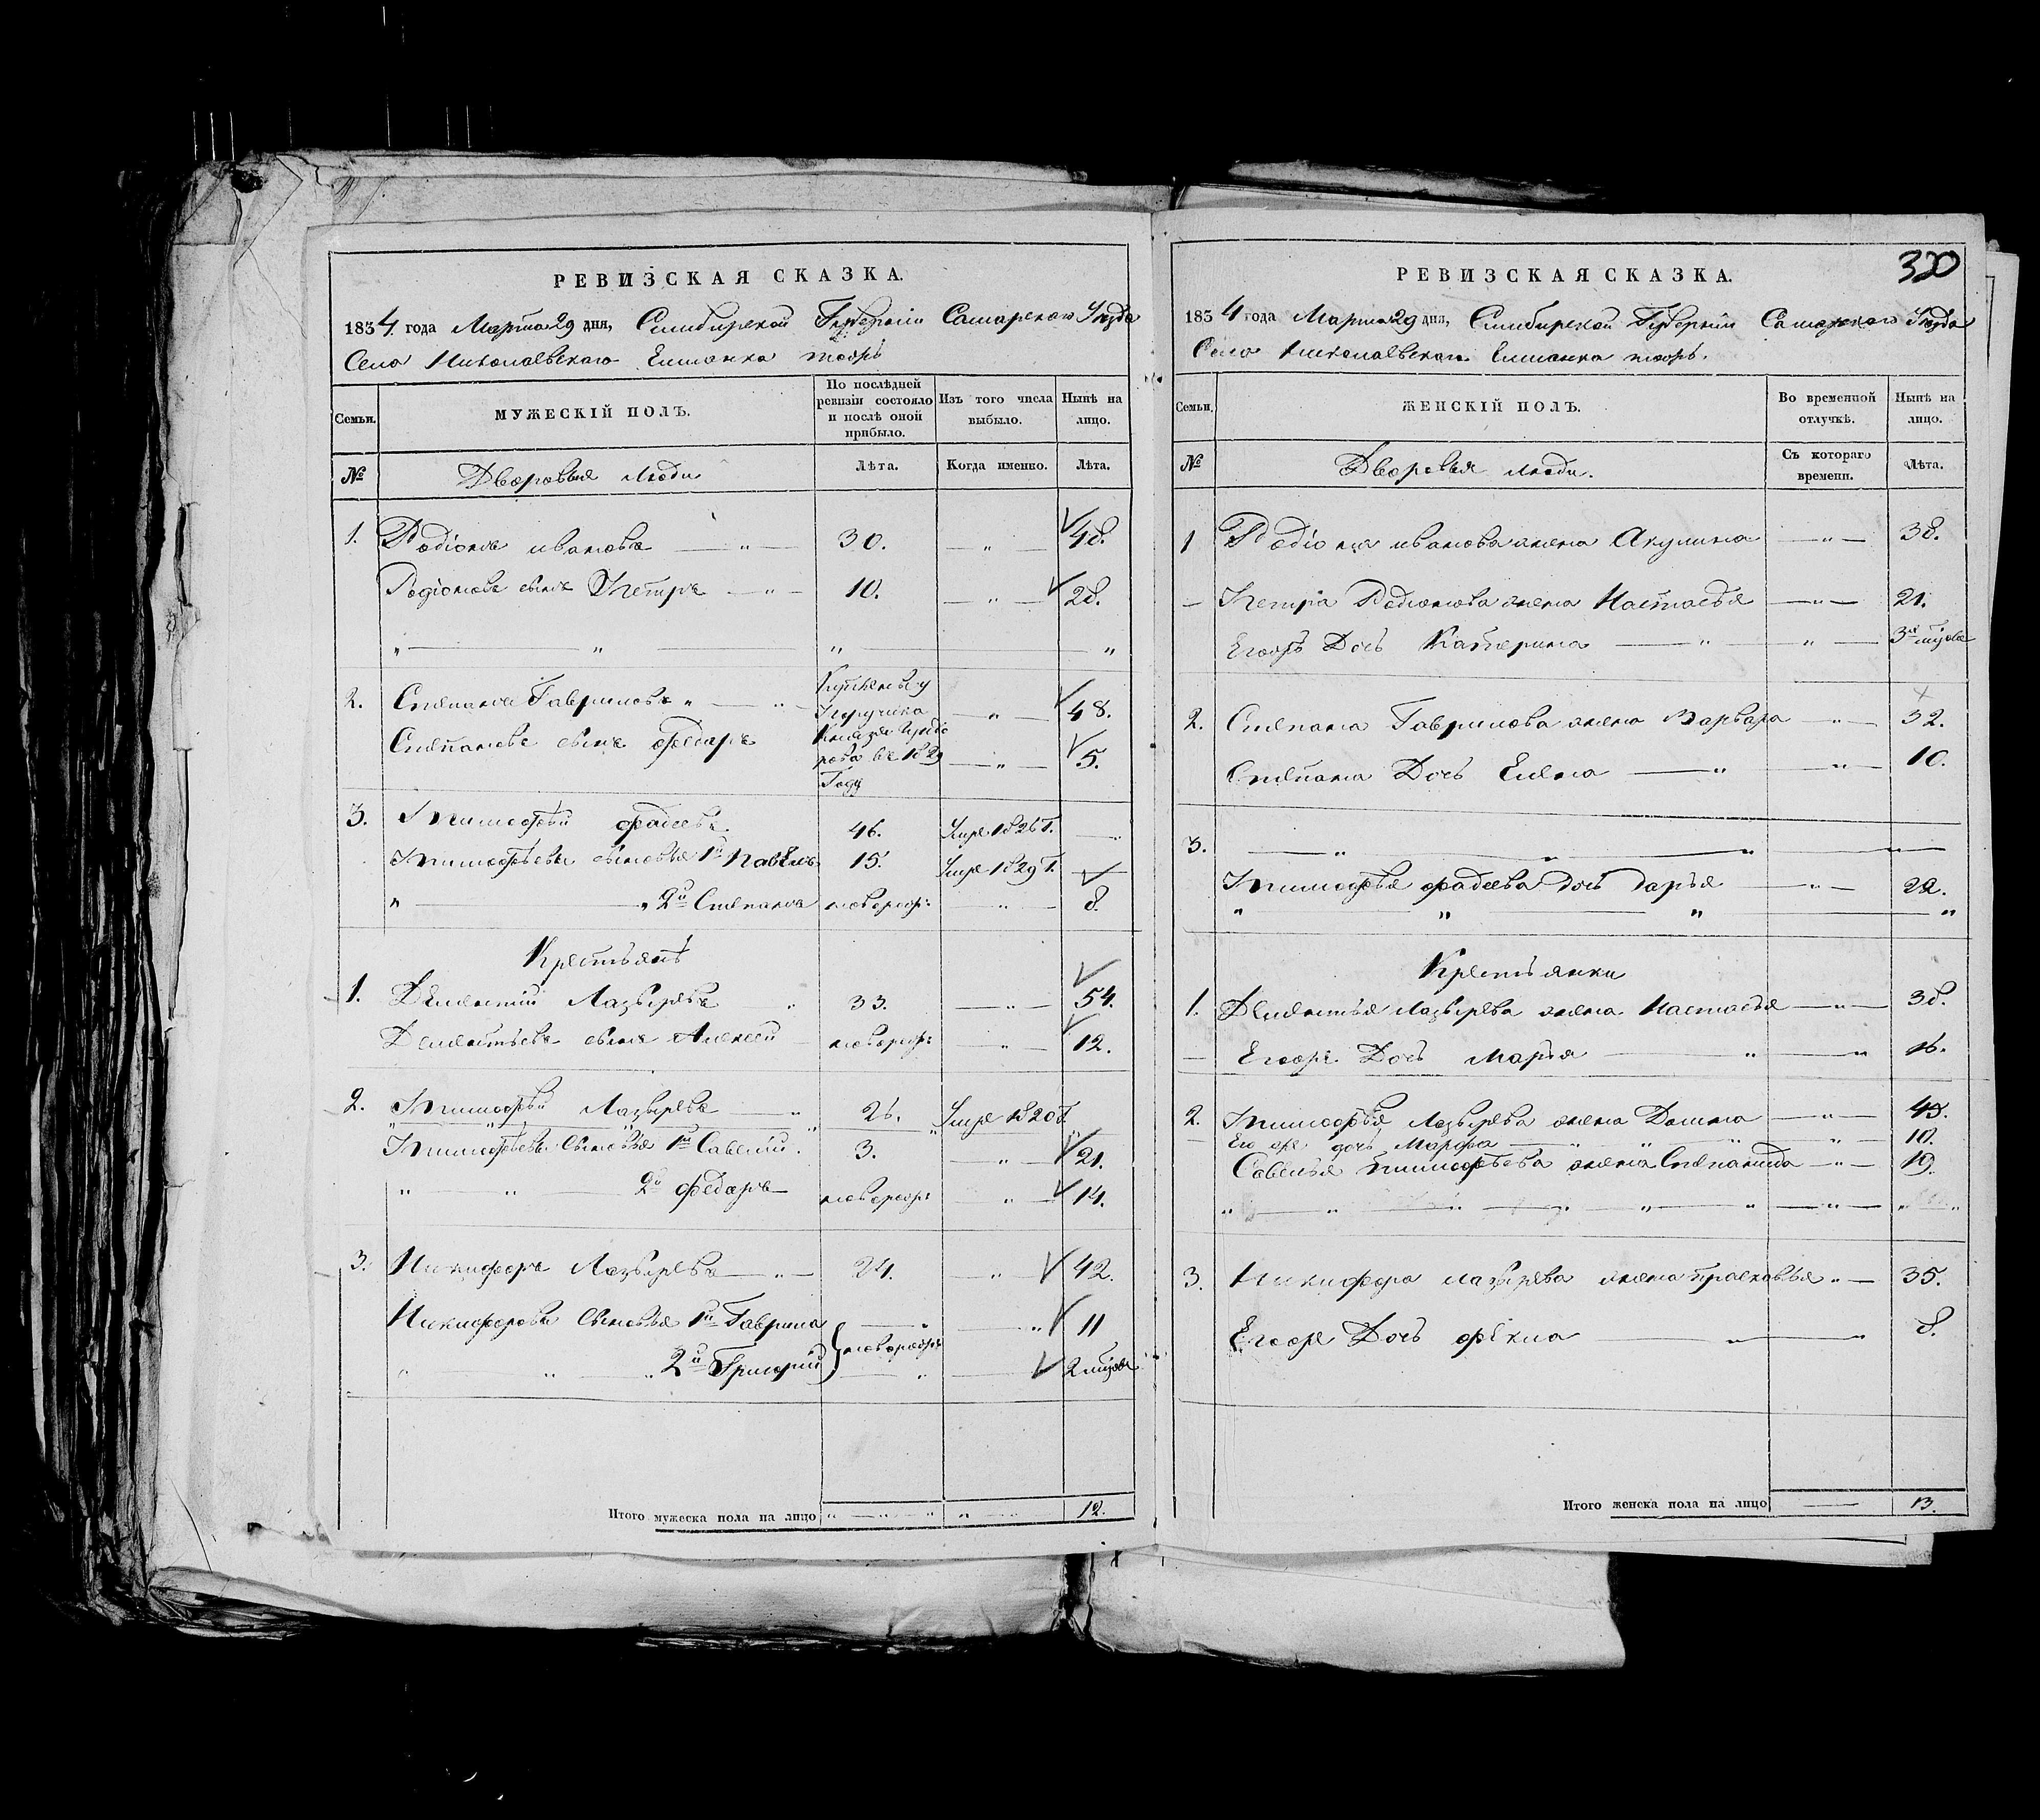 РЕВИЗСКАЯ СКАЗКА.
1834 года Марта 29 дня, Симбирской Губернiи Самарского Уѣзда
Села Николаевскаго Емшанка тожъ
Семьи.
МУЖЕСКІЙ ПОЛЪ.
По послѣдней ревизіи состояло и послѣ оной прибыло.
Изъ того числа выбыло.
Нынѣ на лицо.
№
Дворовыя люди
Лѣта.
Когда именно.
Лѣта.
1. Родіонъ ивановъ — „ — 30. — „ — 48.
Родіоновъ сынъ Петръ — „ — 10. — „ — 28.
„ — „ — „ — „
2. Степанъ Гавриловъ „ — „ — Купленъ у Поручика Князя в 1829 Году — „ — 48.
Степановъ сынъ федаръ — „ — 5.
3. Тимофѣй фадѣевъ. 46. Умре 1826 Г. — „
Тимофѣевы сыновья 1й Павѣлъ 15. Умре 1829 Г. —
„ — „ 2й Степанъ новорож: — „ — 8.
Крестьянъ
1. Деменьтий Лазыревъ „ 33. — „ — 54.
Деменьтьевъ сынъ Алексей новорож: — „ — 12.
2. Тимофѣй Лазыревъ — „ 26. Умре 1820 Г.
Тимофѣевы Сыновья 1й Савелiй. 3. — „ — 21.
„ — „ — 2й федаръ — новорож: — „ — 14.
3. Никифоръ Лазыревъ — „ — 24. — „ — 42.
Никифоровы Сыновья 1й Гаврила — „ — „ 11
новорожд:
„ — „ — „ 2й Григорий — „ — 2 мѣсяца
Итого мужеска пола на лицо „ — „ — „ „ — 12.
320
РЕВИЗСКАЯ СКАЗКА.
1834 года Марта 29 дня, Симбирской Губернiи Самарскаго Уѣзда
Села Николаевскаго Емшанка тожъ.
Семьи.
ЖЕНСКІЙ ПОЛЪ.
Во временной отлучкѣ.
Нынѣ на лицо.
№
Дворовыя люди.
Съ котораго времени.
Лѣта.
1 Родіона иванова жена Акулина — „ — 38.
— Петра Родионова жена Настасья — „ — 21.
Егожъ Дочь Катерина — „ „ — 3х мѣсяцъ
2. Степана Гаврилова жена Варвара „ — 32.
Степана Дочь Елена — „ — „ — 10.
3. — „ — „ — „ — „ —
Тимофѣя фадеева дочь дарья — „ — 22.
„ — „ — „ — „
Крестьянки
1. Деменьтья Лазырева жена Настасья — „ — 38.
— Егожъ Дочь Марья — „ — „ 16.
2. Тимофѣя Лазырева жена Домна — „ — 43.
— Его же дочь Марфа — „ — „ — „ — 10.
Савелья тимофѣева жена Степанида — „ — 19.
„ — „ — „ — „ — „ — „ — „ — „ — „
3. Никифора лазырева жена прасковья „ — 35.
Егожъ Дочь фёкла — „ — „ 8.
Итого женска пола на лицо — 13.